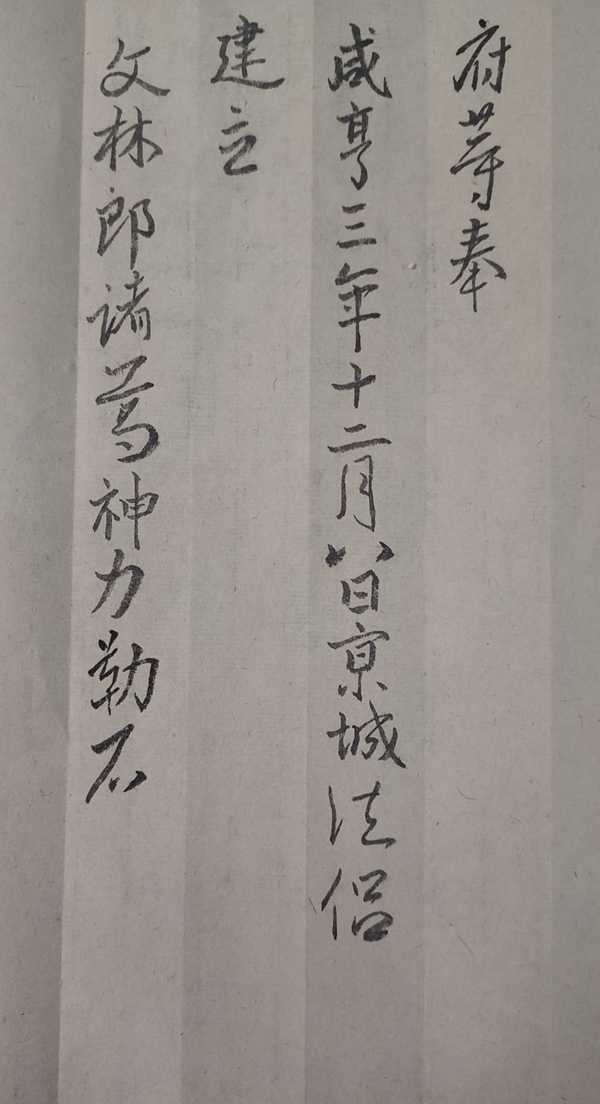 府等奉
咸亨三年十二月八日京城法侣
建立
文林郎诸葛神力勒石